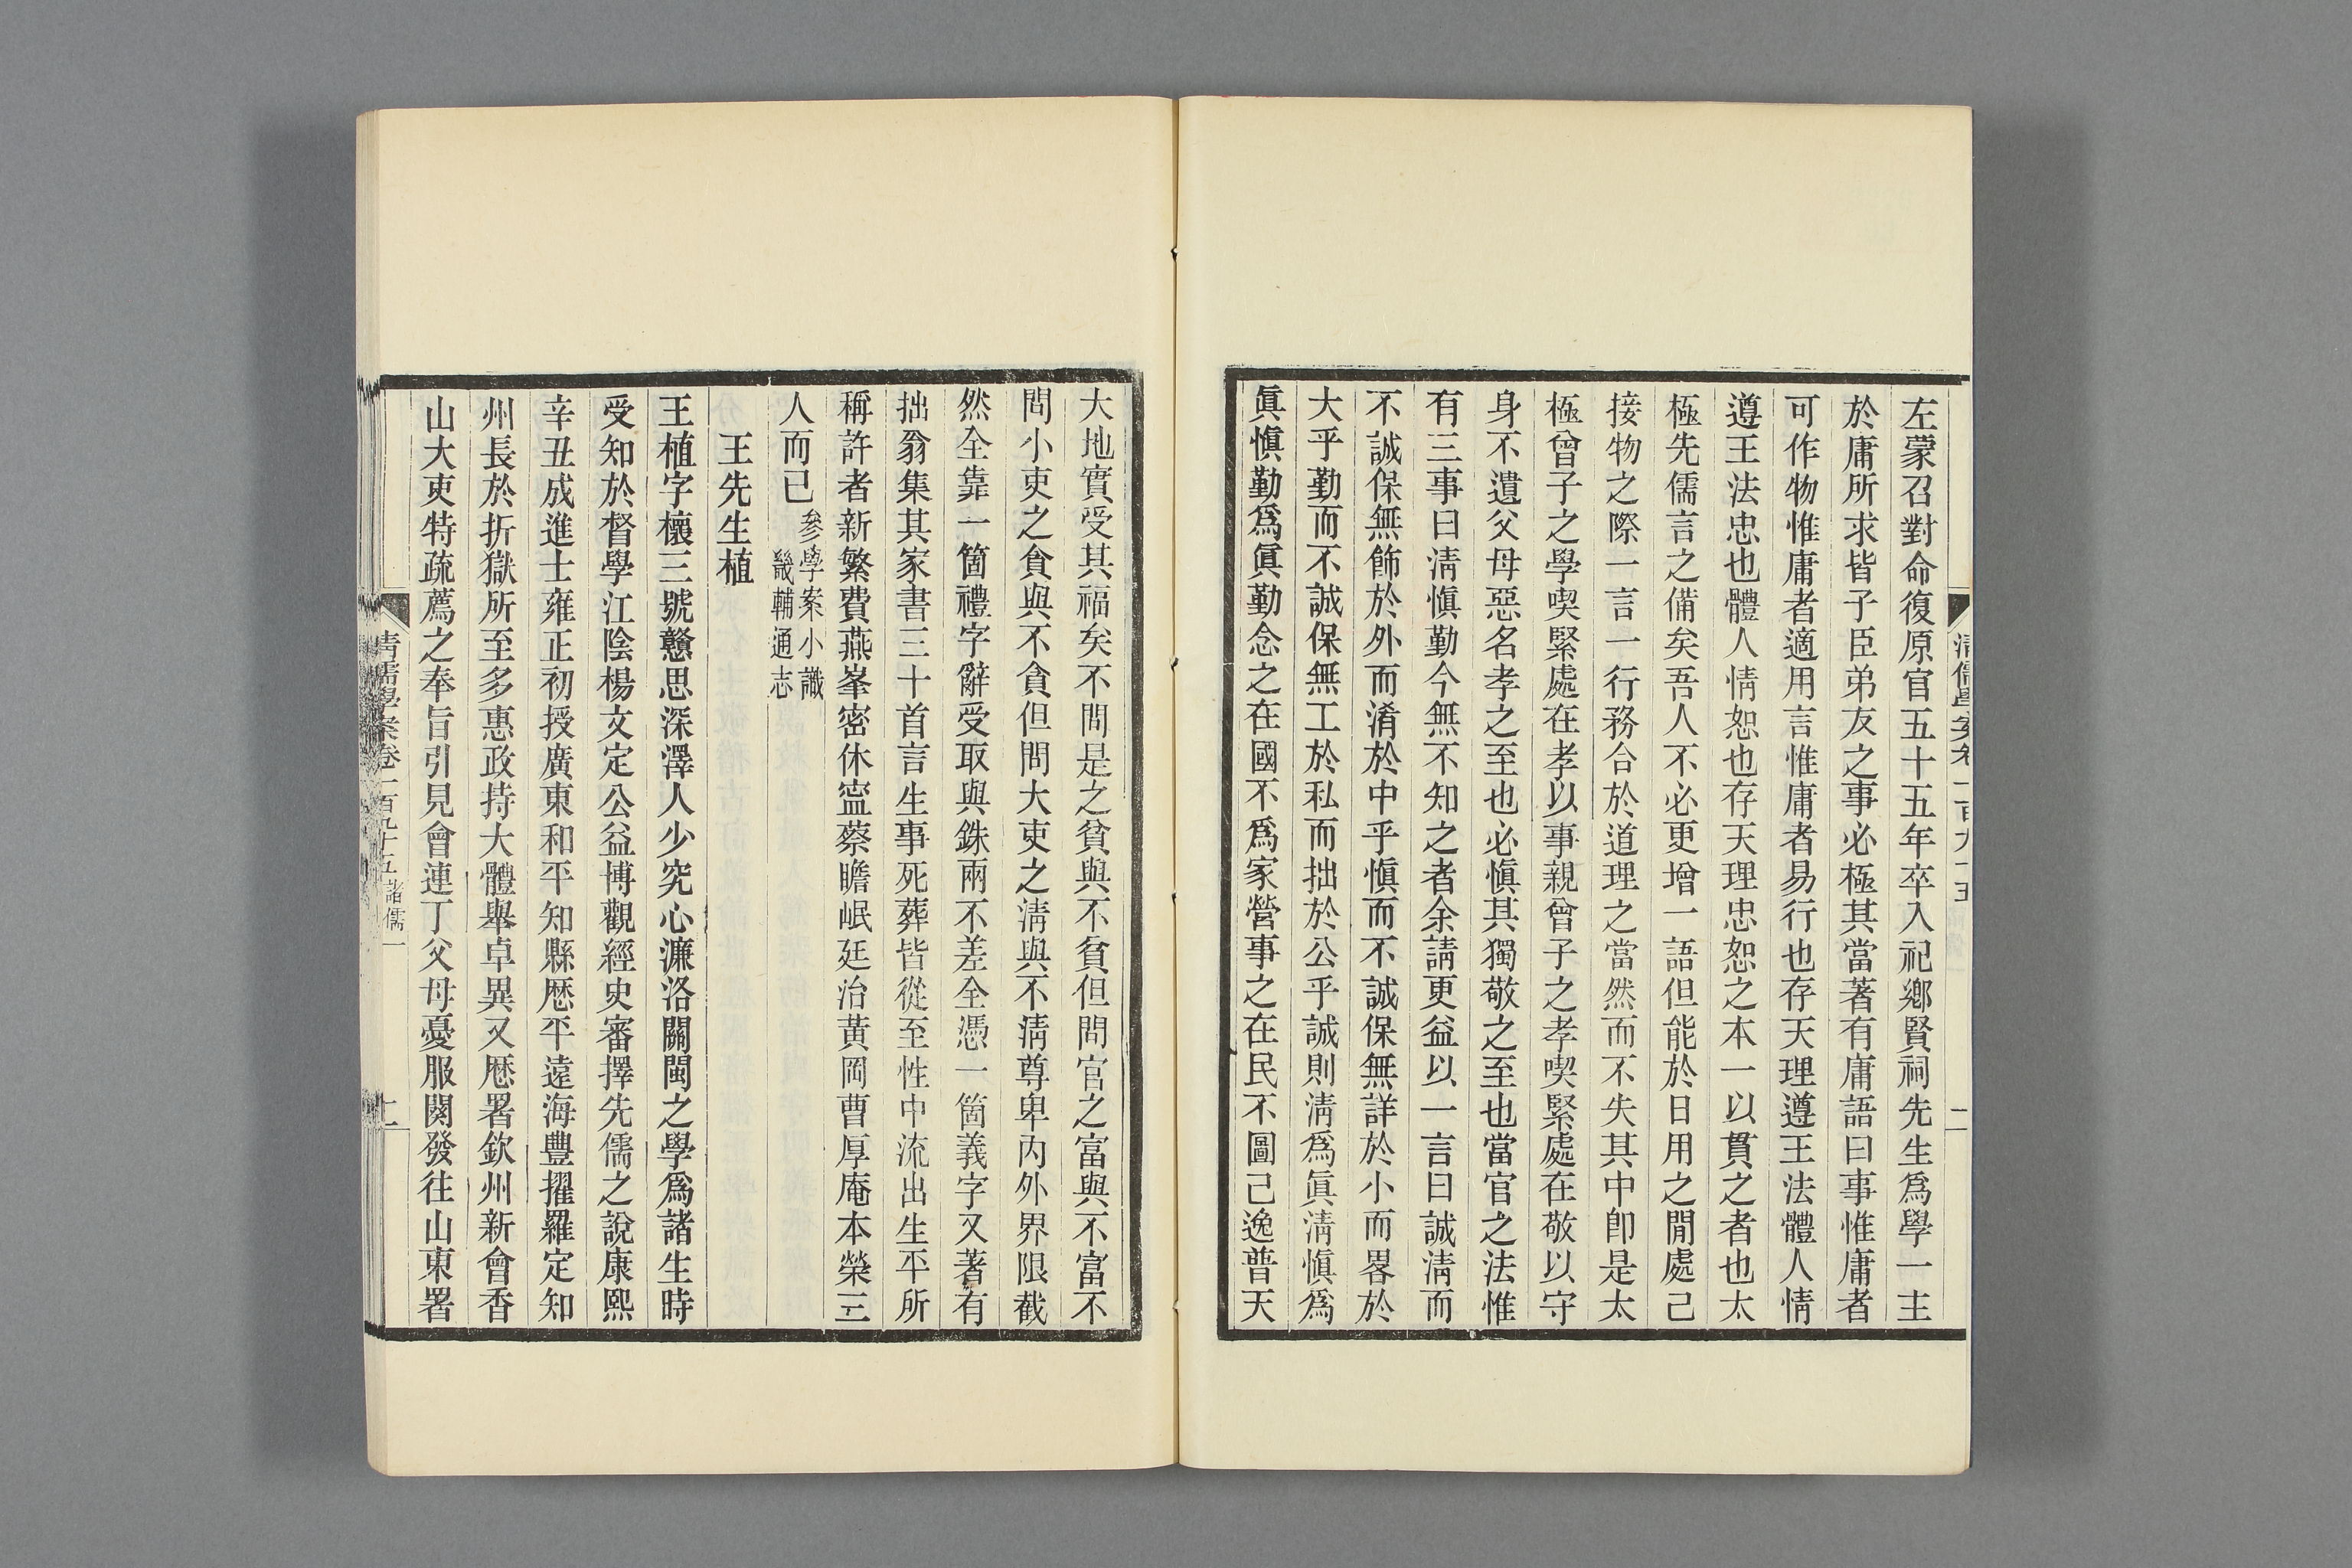 左蒙召對命復原官五十五年卒入祀鄉賢祠先生爲學一主
於庸所求皆子臣弟友之事必極其當著有庸語曰事惟庸者
可作物惟庸者適用言惟庸者易行也存天理遵王法體人情
遵王法忠也體人情恕也存天理忠恕之本一以貫之者也太
極先儒言之備矣吾人不必更增一語但能於日用之閒處己
接物之際一言一行務合於道理之當然而不失其中卽是太
極曾子之學喫緊處在孝以事親曾子之孝喫緊處在敬以守
身不遺父母惡名孝之至也必愼其獨敬之至也當官之法惟
有三事曰淸愼勤今無不知之者余請更益以一言曰誠淸而
不誠保無飾於外而淆於中乎愼而不誠保無詳於小而畧於
大乎勤而不誠保無工於私而拙於公乎誠則淸爲眞淸愼爲
眞愼勤爲眞勤念之在國不爲家營事之在民不圖己逸普天
大地實受其福矣不問是之貧與不貧但問官之富與不富不
問小吏之貪與不貪但問大吏之淸與不淸尊卑內外界限截
然全靠一箇禮字辭受取與銖兩不差全憑一箇義字又著有
拙翁集其家書三十首言生事死葬皆從至性中流出生平所
稱許者新繁費燕峯密休寍蔡瞻岷廷治黃岡曹厚庵本榮三
人而已參學案小識
畿輔通志
王先生植
王植字槐三號戇思深澤人少究心濂洛關閩之學爲諸生時
受知於督學江陰楊文定公益博觀經史審擇先儒之說康熙
辛丑成進士雍正初授廣東和平知縣歷平遠海豐擢羅定知
州長於折獄所至多惠政持大體舉卓異又歷署欽州新會香
山大吏特疏薦之奉旨引見會連丁父母憂服闋發往山東署
淸儒學案卷一百九十五 諸儒一
二